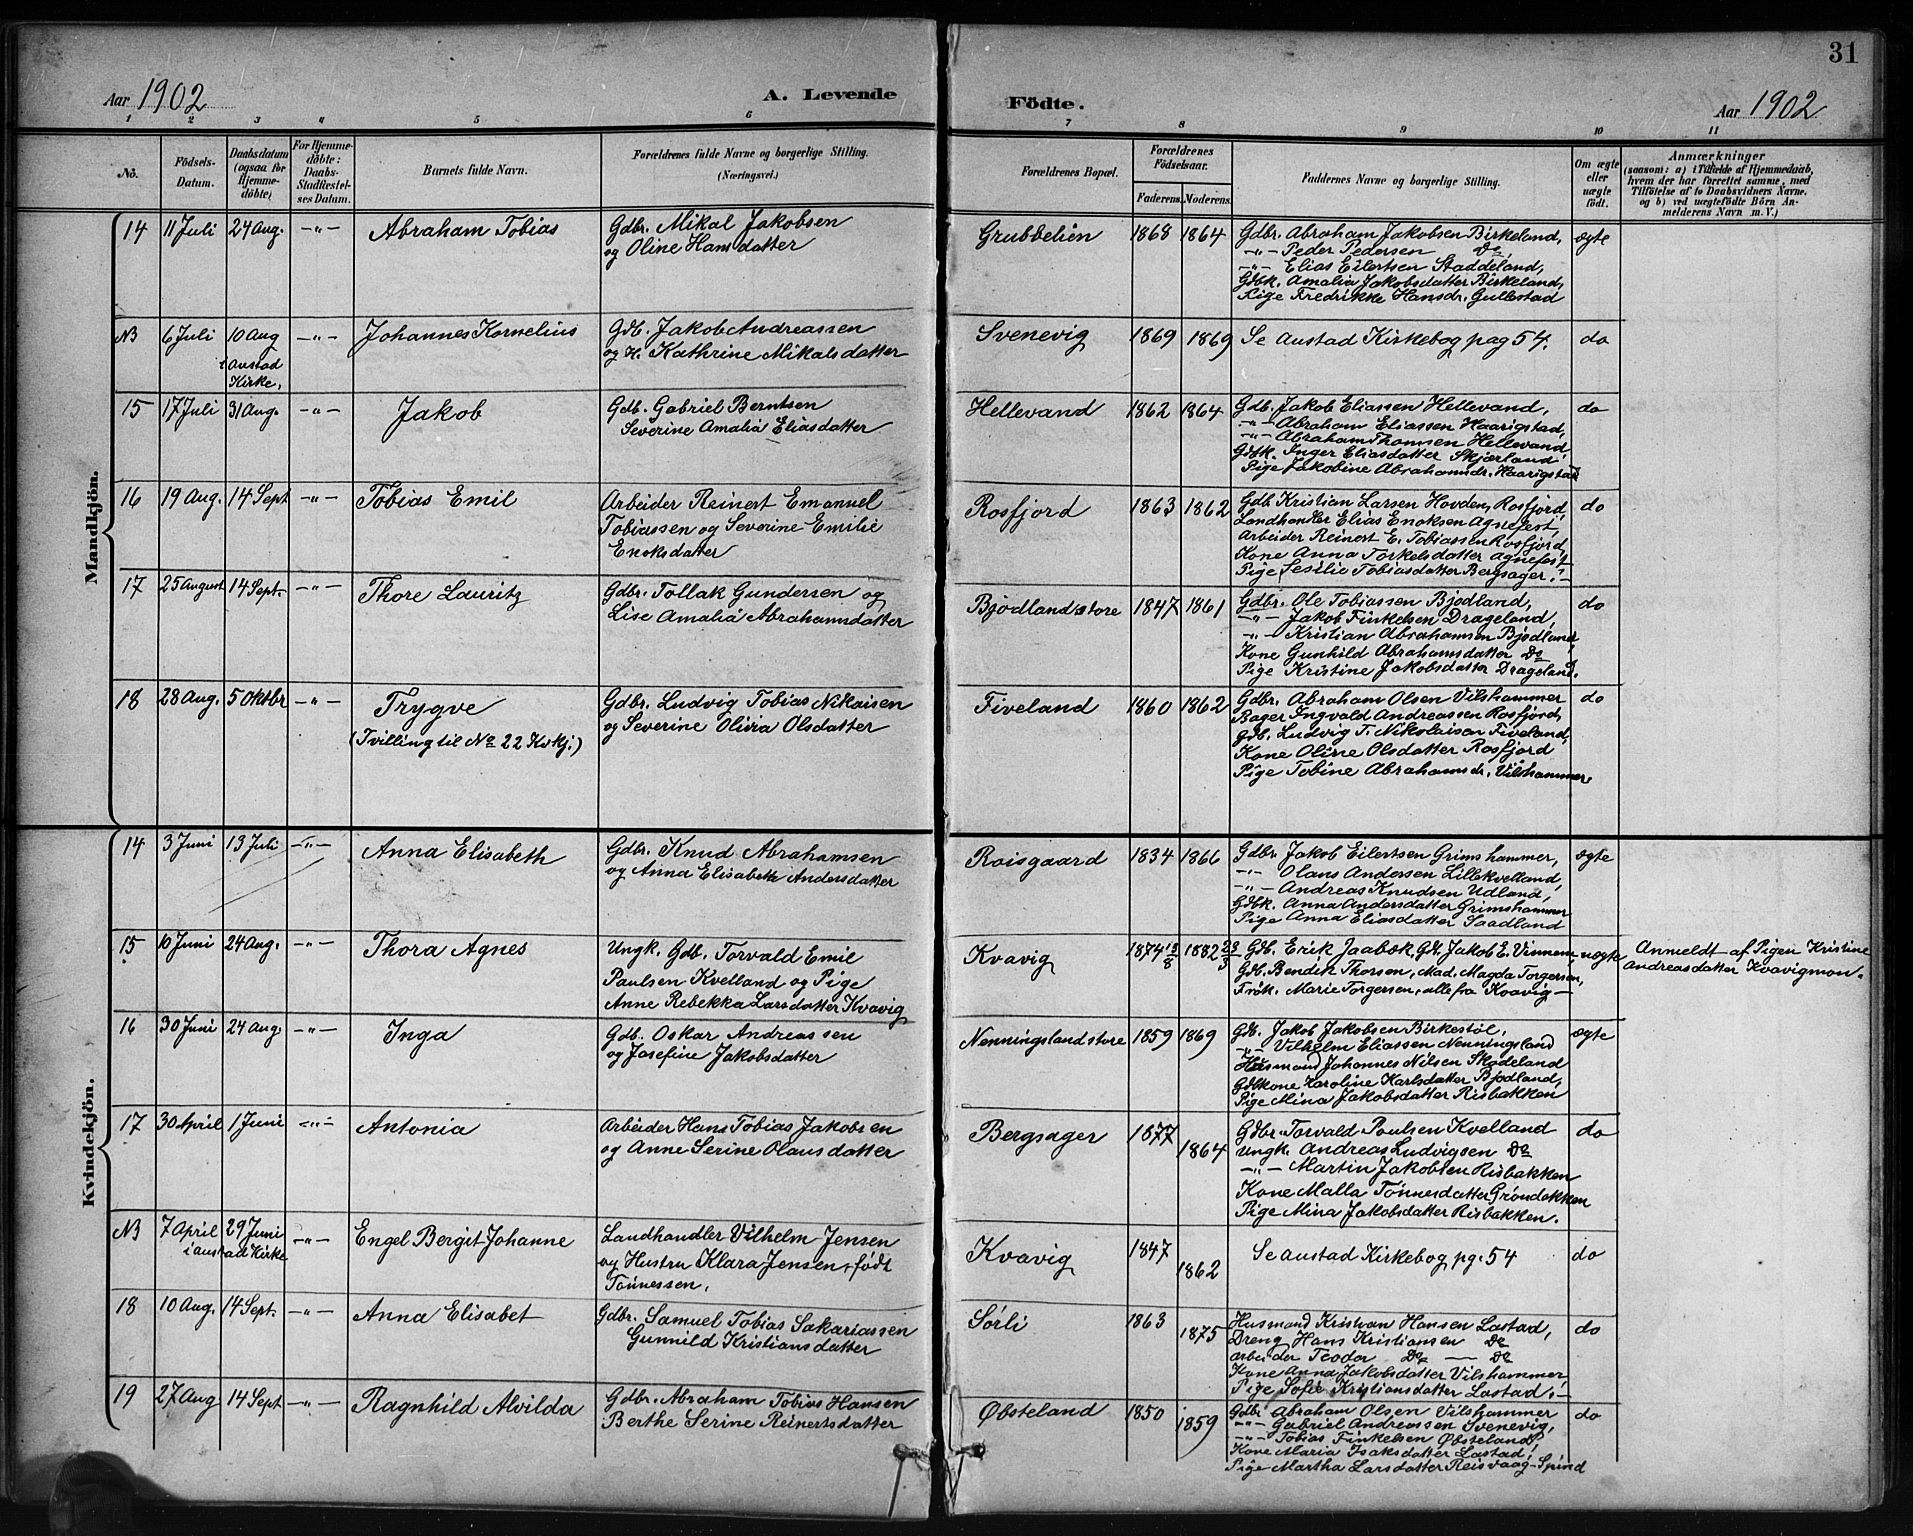 31
Aar 1902 A. Levende Födte. Aar 1902
1 2 3 4 5 6 7 8 9 10 11
No.
Födsels-
Datum.
Daabsdatum
(ogsaa for
Hjemme-
döbte)
For Hjemme-
döbte:
Daabs-
Stadfæstel-
ses Datum.
Barnets fulde Navn.
Forældrenes fulde Navne og borgerlige Stilling.
(Næringsvei.)
Forældrenes Bopæl.
Forældrenes
Födselsaar.
Faderens. Moderens.
Faddernes Navne og borgerlige Stilling.
Om ægte
eller
uægte
födt.
Anmærkninger
(saasom: a) i Tilfælde af Hjemmedaab,
hvem der har forrettet samme, med
Tilföielse af to Daabsvidners Navne,
og b) ved uægtefödte Börn An-
melderens Navn m. V.)
Mandkjön.
14 11 Juli 24 Aug. -"- Abraham Tobias
Gdbr. Mikal Jakobsen
og Oline Hansdatter
Grubbelien 1868 1864
Gdbr. Abraham Jakobsen Birkeland,
-"- Peder Pedersen Do
-"- Elias Eilertsen Staddeland,
Gdbk. Amalia Jakobsdatter Birkeland,
Pige Fredrikke Hansdr. Gullestad
ægte
NB 6 Juli 10 Aug
i Austad
Kirke,
-"- Johannes Kornelius
Gdb. Jakob Andreassen
og H. Kathrine Mikalsdatter
Svenevig 1869 1869 Se Austad Kirkebog pag 54. do
15 17 Juli 31 Aug. -"- Jakob
Gdb. Gabriel Berntsen
Severine Amalia Eliasdatter
Hellevand 1862 1864
Gdb. Jakob Eliassen Hellevand,
-"- Abraham Eliassen Haarigstad,
-"- Abraham Thomsen Hellevand
Gdbk. Inger Eliasdatter Skjærland
Pige Jakobine Abrahamdr. Haarigstad
do
16 19 Aug. 14 Sept -"- Tobias Emil
Arbeider Reinert Emanuel
Tobiassen og Severine Emilie
Enoksdatter
Rosfjord 1863 1862
Gdb. Kristian Larsen Hovden, Rosfjord,
Landhanler Elias Enoksen Agnefest
Arbeider Reinert E. Tobiassen Rosfjord
Kone Anna Torkelsdatter Agnefest
Pige Sesilie Tobiasdatter Bergsager. -
do
17 25 August 14 Sept. -"- Thore Lauritz
Gdbr. Tollak Gundersen og
Lise Amalia Abrahamsdatter
Bjødland store 1847 1861
Gdbr. Ole Tobiassen Bjodland,
-"- Jakob Finkelsen Drageland,
-"- Kristian Abrahamsen Bjødland
Kone Gunhild Abrahamsdatter Do
Pige Kristine Jakobsdatter Drageland.
do
18 28 Aug. 5 Oktbr -"- Trygve
(Tvilling til No 22 Kvkj.)
Gdbr. Ludvig Tobias Nikaisen
og Severine Olivia Olsdatter
Fiveland 1860 1862
Gdbr. Abraham Olsen Vilshammer
Bager Ingvald Andreassen Rosfjord,
Gdb. Ludvig T. Nikolaisen Fiveland,
Kone Oline Olsdatter Rosfjord
Pige Tobine Abrahamsdr. Vilshammer.
do
Kvindekjön.
14 3 Juni 13 Juli -"- Anna Elisabeth
Gdbr. Knud Abrahamsen
og Anna Elisabeth Andersdatter
Roisgaard 1834 1866
Gdbr. Jakob Eilertsen Grimshammer,
-"- Olans Andersen Lillekvelland,
-"- Andreas Knudsen Udland,
Gdbk. Anna Andersdatter Grimshammer
Pige Anna Eliasdatter Saadland
ægte
15 10 Juni 24 Aug. -"- Thora Agnes
Ungk. Gdb. Torvald Emil
Paulsen Kvelland og Pige
Anne Rebekka Larsdatter Kvavig
Kvavig 1874 13/8 1882 23/3
Gdb. Erik Jaabæk, Gdb. Jakob E. Vinnem
Gdb. Bendik Thorsen, Mad. Magda Torgersen,
Frøk. Marie Torgersen, alle fra Kvavig -
uægte
Anmeldt af Pigen Kristine
Andreasdatter Kvavigmon.
16 30 Juni 24 Aug. -"- Inga
Gdb. Oskar Andreassen
og Josefine Jakobsdatter
Nenningsland store 1859 1869
Gdb. Jakob Jakobsen Birkestøl,
-"- Vilhelm Eliassen Nenningsland
Husmand Johannes Nilsen Skadeland
Gdbkone Karoline Karlsdatter Bjodland,
Pige Mina Jakobsdatter Risbakken
ægte
17 30 April 1 Juni -"- Antonia
Arbeider Hans Tobias Jakobsen
og Anne Serine Olausdatter
Bergsager 1877 1864
Gdbr. Torvald Paulsen Kvelland
Ungk. Andreas Ludvigsen Do
-"- Martin Jakobsen Risbakken
Kone Malla Tønnesdatter Grøndokken
Pige Mina Jakobsdatter Risbakken.
do
NB 7 April 29 Juni
i Austad Kirke
-"- Engel Bergit Johanne
Landhandler Vilhelm Jensen
og Hustru Klara Jensen, født
Tønnessen.
Kvavig 1847 1862 Se Austad Kirkebog pg. 54 do
18 10 Aug. 14 Sept. -"- Anna Elisabet
Gdbr. Samuel Tobias Sakariassen
Gunnild Kristiansdatter
Sørli 1863 1875
Husmand Kristian Hansen Lastad,
Dreng Hans Kristiansen Do
Arbeider Teodor Do - Do
Kone Anna Jakobsdatter Vilshammer,
Pige Sofie Kristiansdatter Lastad. -
do
19 27 Aug 14 Sept -"- Ragnhild Alvilda
Gdbr. Abraham Tobias Hansen
Berthe Serine Reinertsdatter
Øbsteland 1850 1859
Gdbr. Abraham Olsen Vilshammer
-"- Gabriel Andreassen Svenevig,
-"- Tobias Finkelsen Øbsteland
Kone Maria Isaksdatter Lastad,
Pige Martha Larsdatter Reisvaag - Spind
do